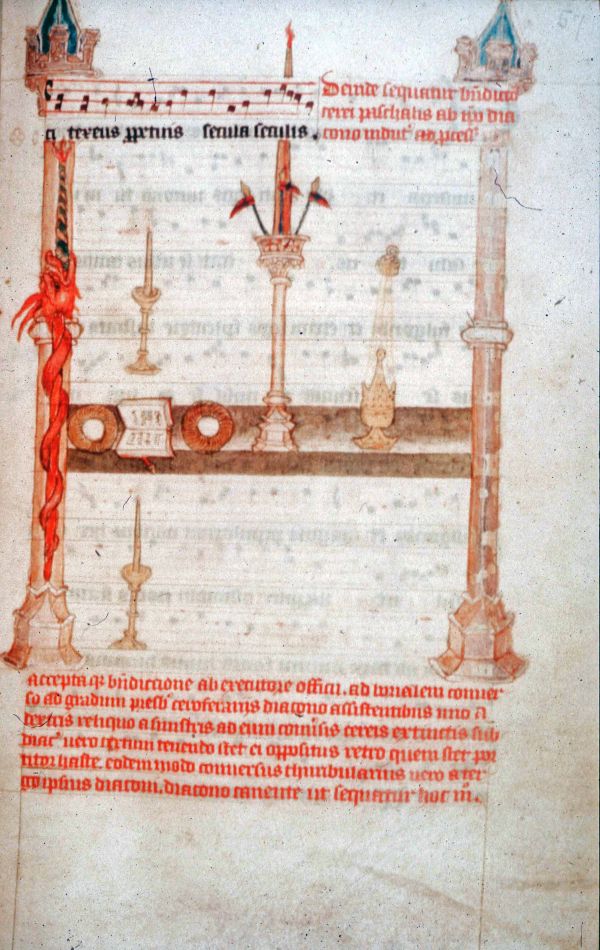 57
Deinde sequatur bñdictio
cerei paschalis ab ipo dia
cono indut' ad
ci tereus secula seculis.
accepta q; bñdiccione ab executore officij. ad
so ad gradum presb' ceroferariis diacono assistentibus uno a
dextris reliquo a sinistris ad eum conv'sis cereis extinctis sub
diac' uero textum tenendo stet ei oppositus retro quem stet por
titor haste. eodem modo conversus thuribularius uero a ter
go ipsius diaconi. diacono canente ut sequatur hoc m'.